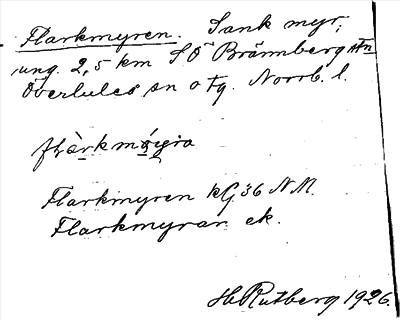 Flarkmyren. Sank myr,
ung. 2,5 km SÖ Brännberg stn
Överlules sn o tg. Norrb. l.
Flarkmyren kG 36 NM.
Flarkmyran ek.
Hb Rutberg 1926.